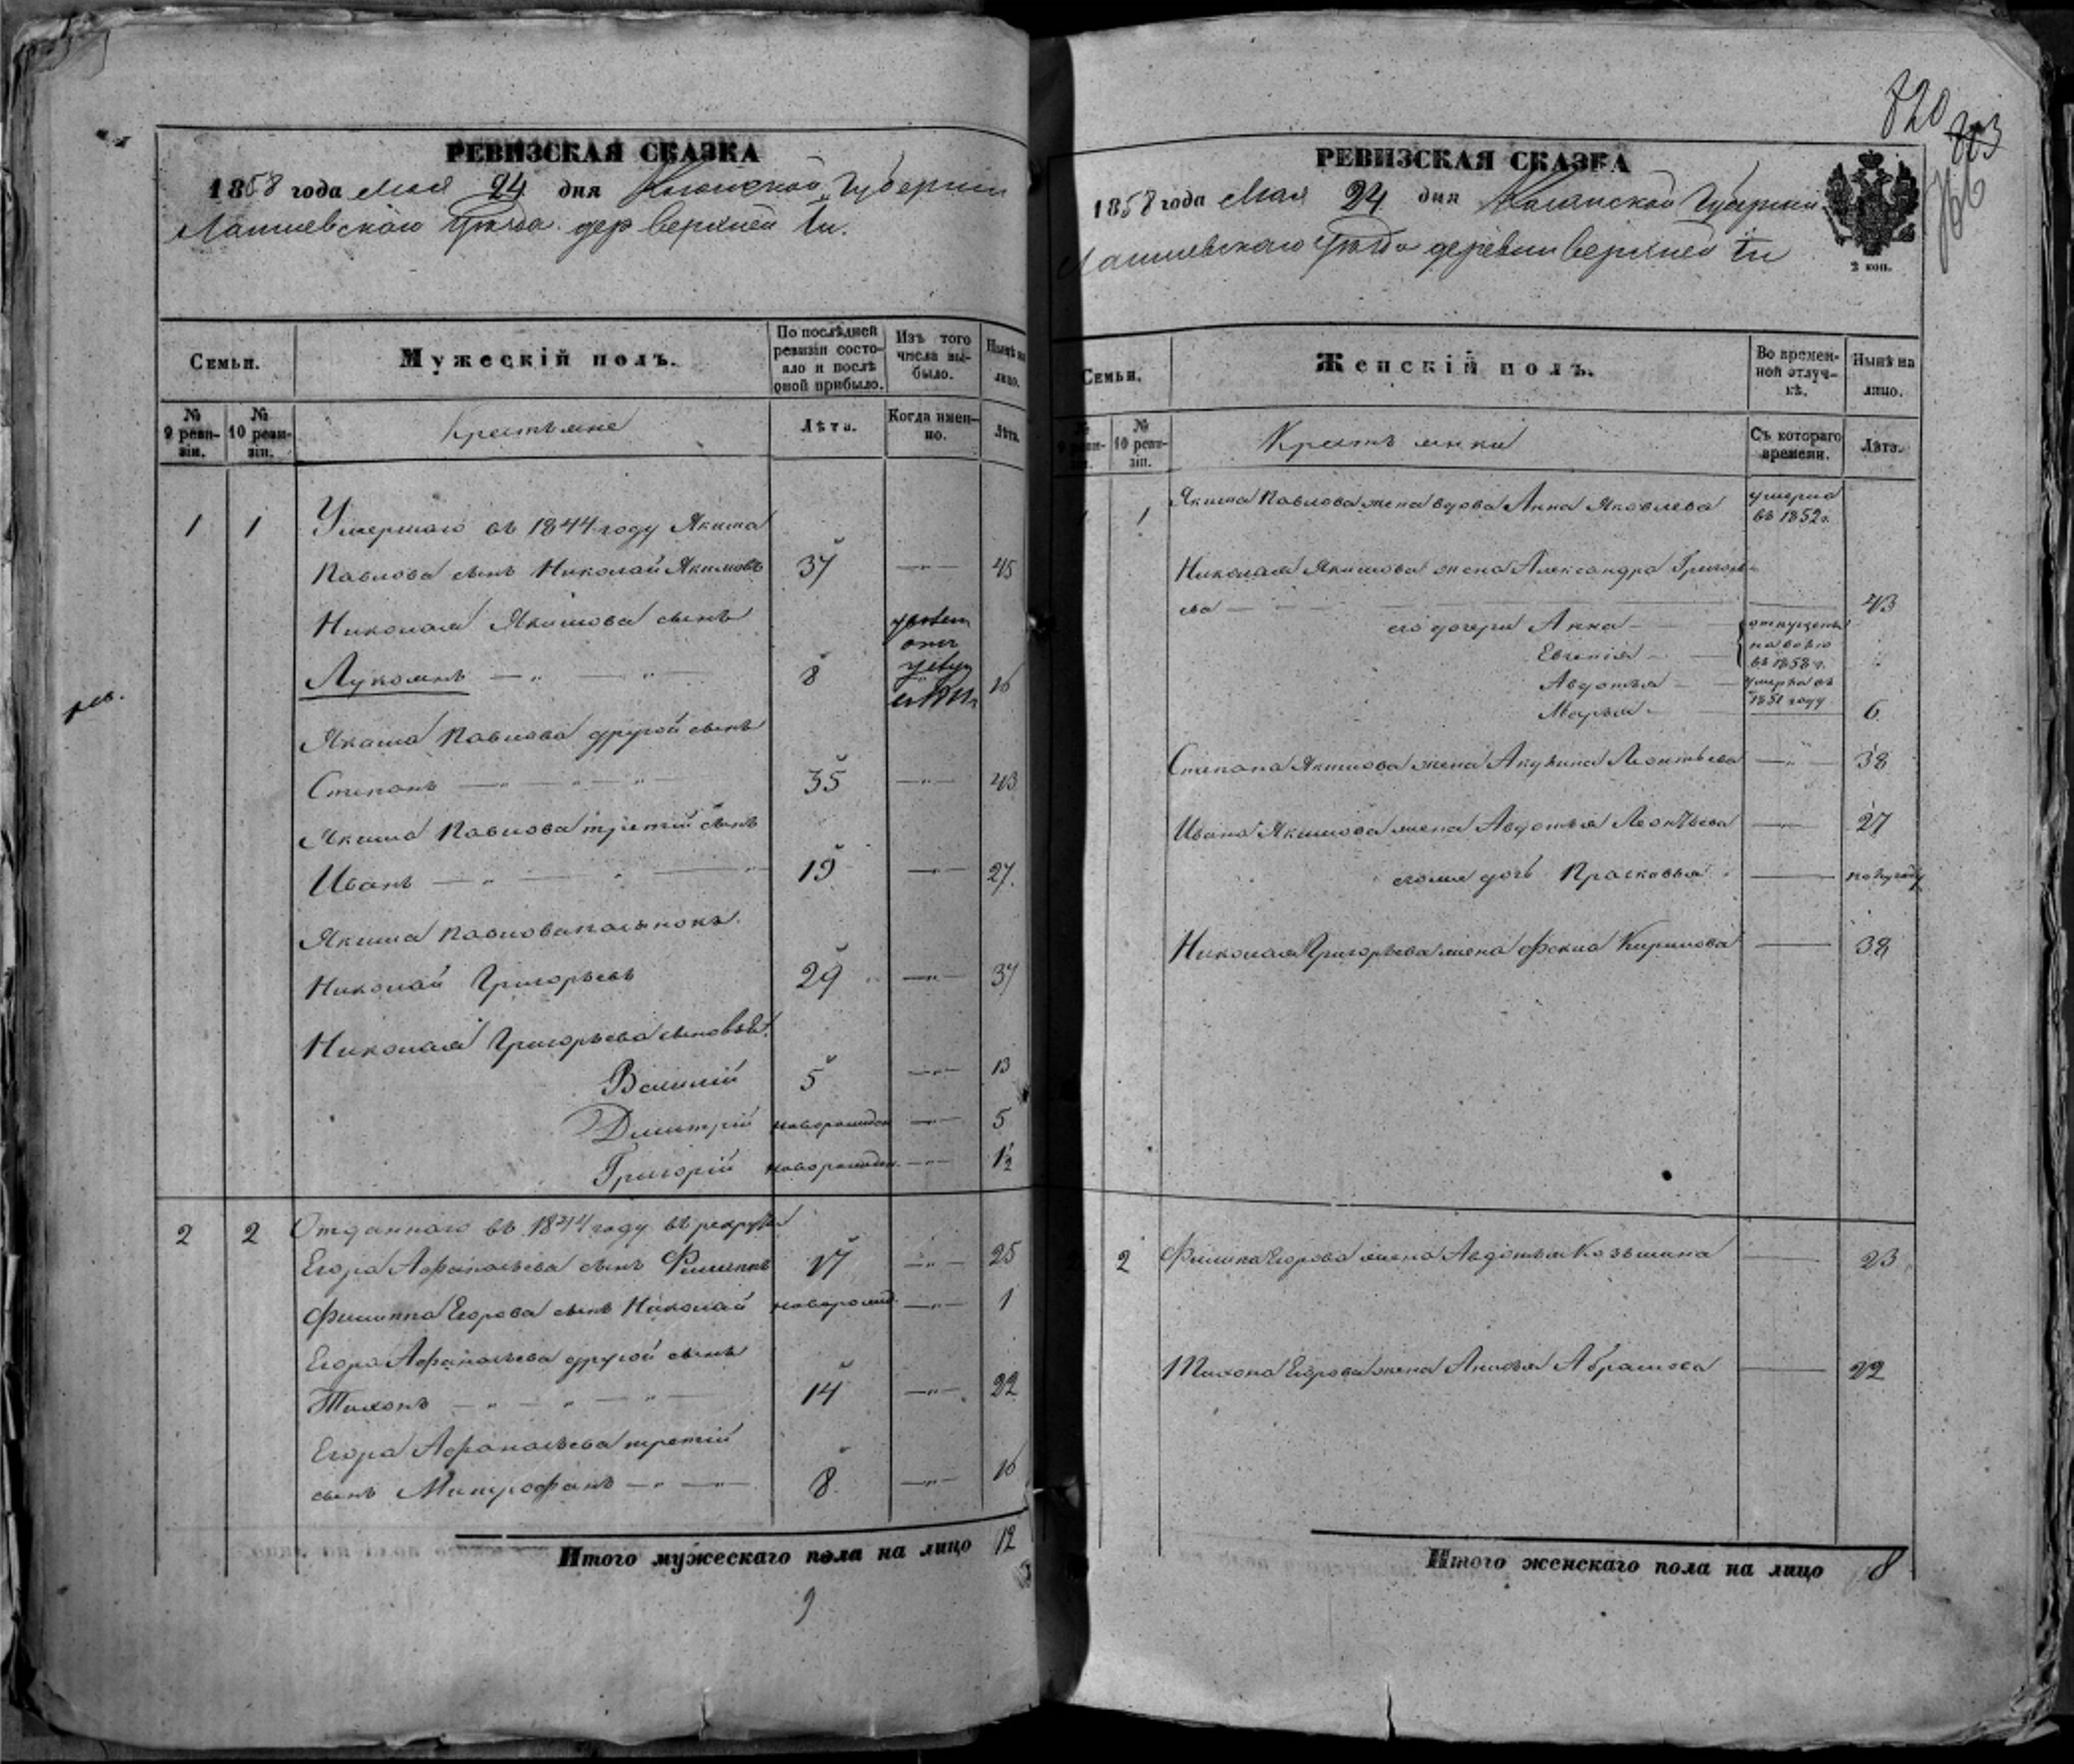 РЕВИЗСКАЯ СКАЗКА
1858 года Мая 24 дня Казанской Губернии
Лаишевскаго Уѣзда дер Верхней Іи.
Семьи.
Мужескій полъ.
По послѣдней ревизіи состояло и послѣ оной прибыло.
Изъ того числа выбыло.
Нынѣ на лицо.
№ 9 ревизіи.
№ 10 ревизіи.
Крестьяне
Лѣта.
Когда именно.
Лѣта.
1 1 Умершаго въ 1844 году Якима
Павлова сынъ Николай Якимовъ 37 45
Николая Якимова сынъ
Лукоянъ 8 16
рев.
Якима Павлова другой сынъ
Степанъ 35 43
Якима Павлова третій сынъ
Иванъ 19 27.
Якима Павлова пасынокъ
Николай Григорьевъ 29 37
Николая Григорьева сыновья
Василій 5 13
Дмитрій новорожден 5
Григорій новорожден. 1½
2 2 Отданнаго въ 1844 году въ рекруты
Егора Афанасьева сынъ Филиппъ 17 25
Филиппа Егорова сынъ Николай новорожд. 1
Егора Афанасьева другой сынъ
Тихонъ 14 22
Егора Афанасьева третій
сынъ Митрофанъ 8 16
Итого мужескаго пола на лицо 12
820
803
РЕВИЗСКАЯ СКАЗКА
1858 года Мая 24 дня Казанской Губерніи
Лаишевскаго Уѣзда деревни Верхней Іи
2 коп.
Семьи.
Женскій полъ.
Во временной отлучкѣ.
Нынѣ на лицо.
№ 9 ревизіи.
№ 10 ревизіи.
Крестьянки
Съ котораго времени.
Лѣта.
1 1 Якима Павлова жена вдова Анна Яковлева умерла въ 1852 г.
Николая Якимова жена Александра Григорь
ева 43
его дочери Анна отпущены
Евгенія на волю въ 1858 г.
Авдотья умерла въ 1851 году
Марья 6
Степана Якимова жена Акулина Леонтьева 38
Ивана Якимова жена Авдотья Леонтьева 27
его дочь Прасковья полугоду
Николая Григорьева жена Фекла Кирилова 38
2 Филипа Егорова жена Авдотья Козьмина 23
Тихона Егорова жена Анисья Абрамова 22
Итого женскаго пола на лицо 8